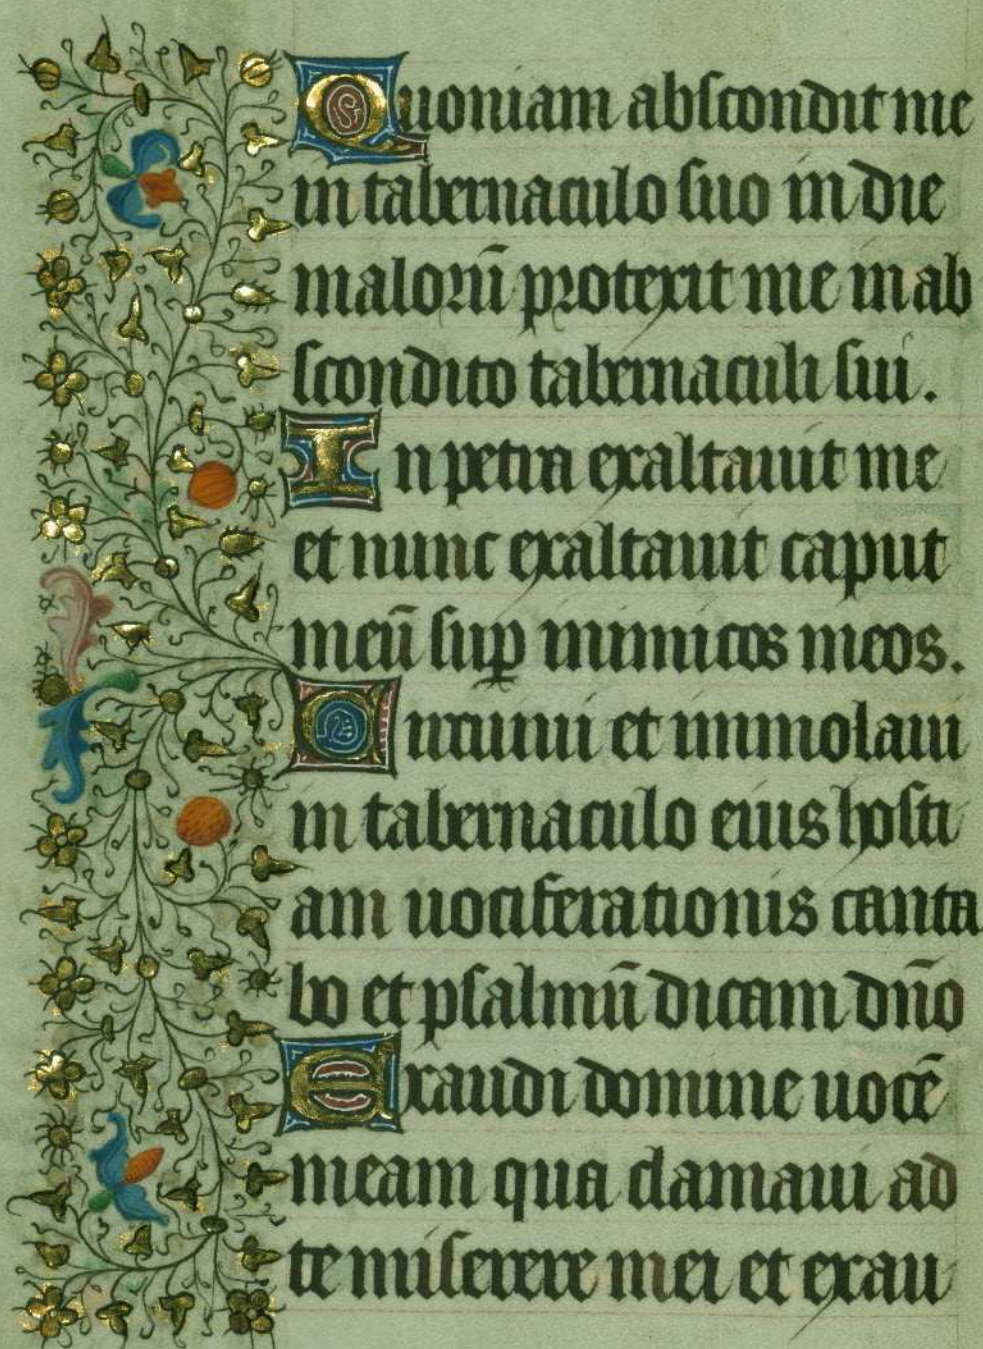 Quoniam abſcondit me
in tabernaculo ſuo in die
malorū protexit me in ab
ſcondito tabernaculi ſui.
In petra exaltauit me
et nunc exaltauit caput
meū ſuꝑ inimicos meos.
Circuiui et immolaui
in tabernaculo eius hoſti
am uociferationis canta
bo et pſalmū dicam dn̄o
Exaudi domine uocē
meam qua clamaui ad
te miſerere mei et exau